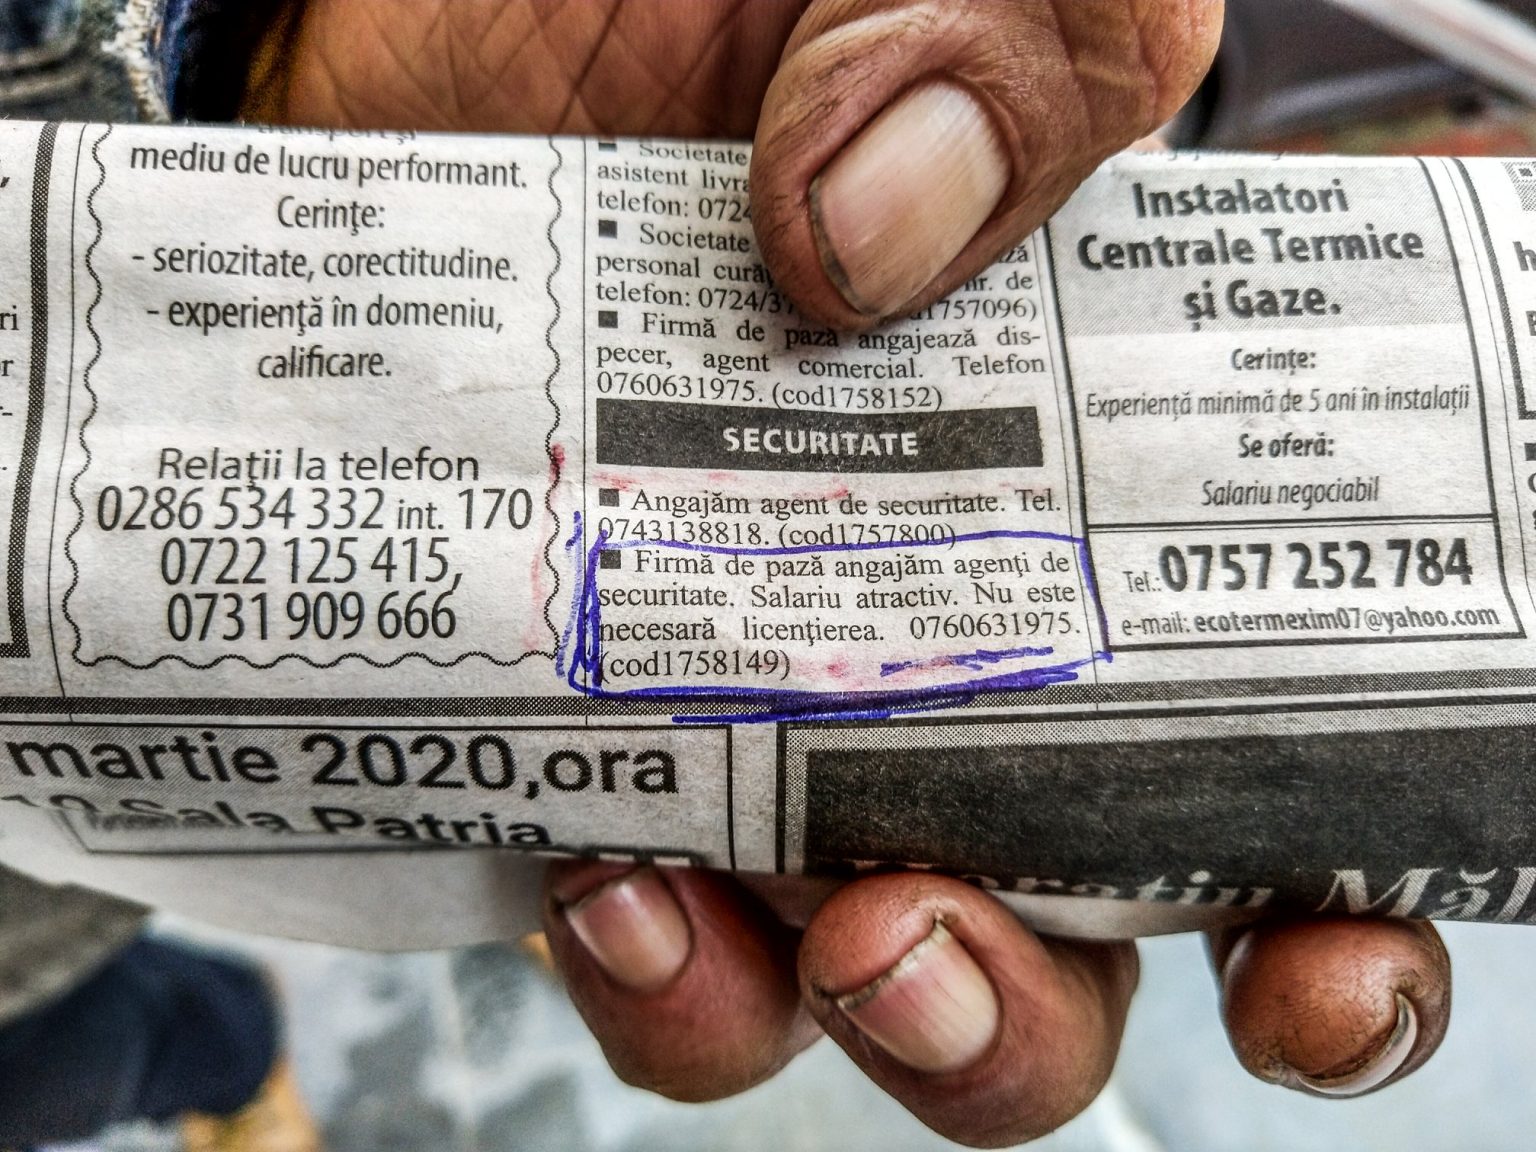 mediu de lucru performant.
Cerinţe:
- seriozitate, corectitudine.
- experienţă în domeniu,
calificare.
Relaţii la telefon
0286 534 332 int. 170
0722 125 415,
0731 909 666
■ Societate
asistent
telefon:
■ Societate
personal
nr. de
telefon:
■ Firmă de pază angajează dis-
pecer, agent comercial. Telefon
0760631975. (cod1758152)
SECURITATE
■ Angajăm agent de securitate. Tel.
0743138818. (cod1757800)
■ Firmă de pază angajăm agenţi de
securitate. Salariu atractiv. Nu este
necesară licenţierea. 0760631975.
(cod1758149)
Instalatori
Centrale Termice
şi Gaze.
Cerinţe:
Experienţă minimă de 5 ani în instalaţii
Se oferă:
Salariu negociabil
Tel.: 0757 252 784
e-mail: ecotermexim07@yahoo.com
martie 2020,ora
Sala Patria